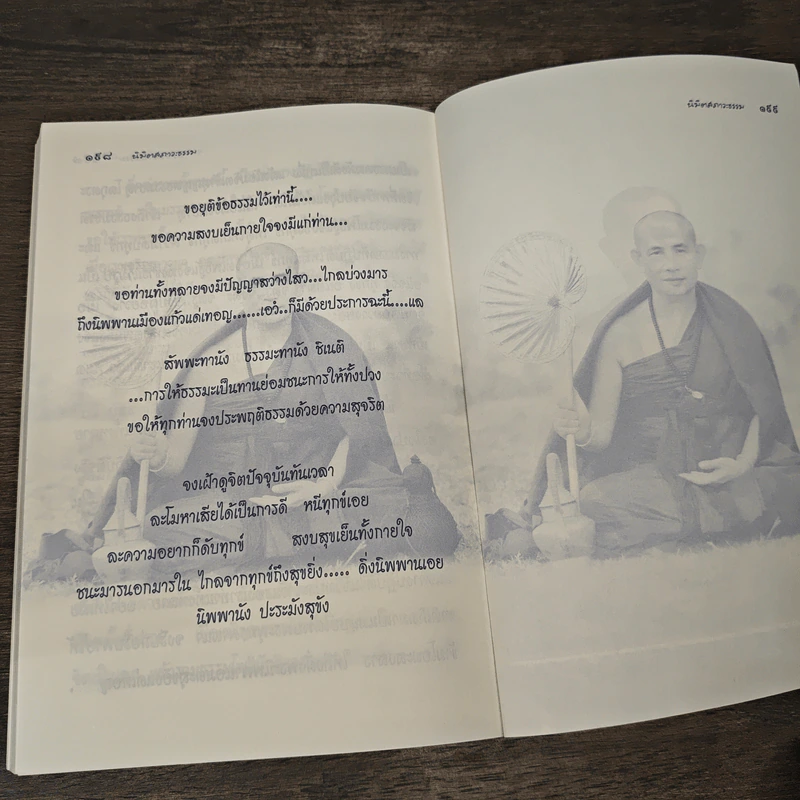 ๑๙๘ นิมิตสภาวะธรรม
ขอยุติข้อธรรมไว้เท่านี้....
ขอความสงบเย็นกายใจจงมีแก่ท่าน...
ขอท่านทั้งหลายจงมีปัญญาสว่างไสว...ไกลบ่วงมาร
ถึงนิพพานเมืองแก้วแด่เทอญ......เอวํ..ก็มีด้วยประการฉะนี้....แล
สัพพะทานัง ธรรมะทานัง ชิเนติ
...การให้ธรรมะเป็นทานย่อมชนะการให้ทั้งปวง
ขอให้ทุกท่านจงประพฤติธรรมด้วยความสุจริต
จงเฝ้าดูจิตปัจจุบันทันเวลา
ละโมหาเสียได้เป็นการดี หนีทุกข์เอย
ละความอยากก็ดับทุกข์ สงบสุขเย็นทั้งกายใจ
ชนะมารนอกมารใน ไกลจากทุกข์ถึงสุขยิ่ง..... ดิ่งนิพพานเอย
นิพพานัง ปะระมังสุขัง
นิมิตสภาวะธรรม ๑๙๙